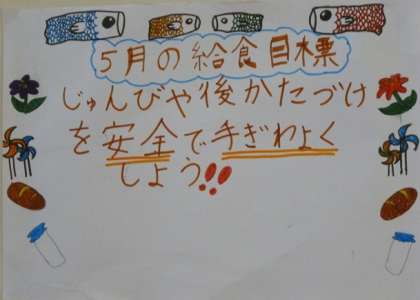 5月の給食目標
じゅんびや後かたづけ
を安全で手ぎわよく
しよう!!